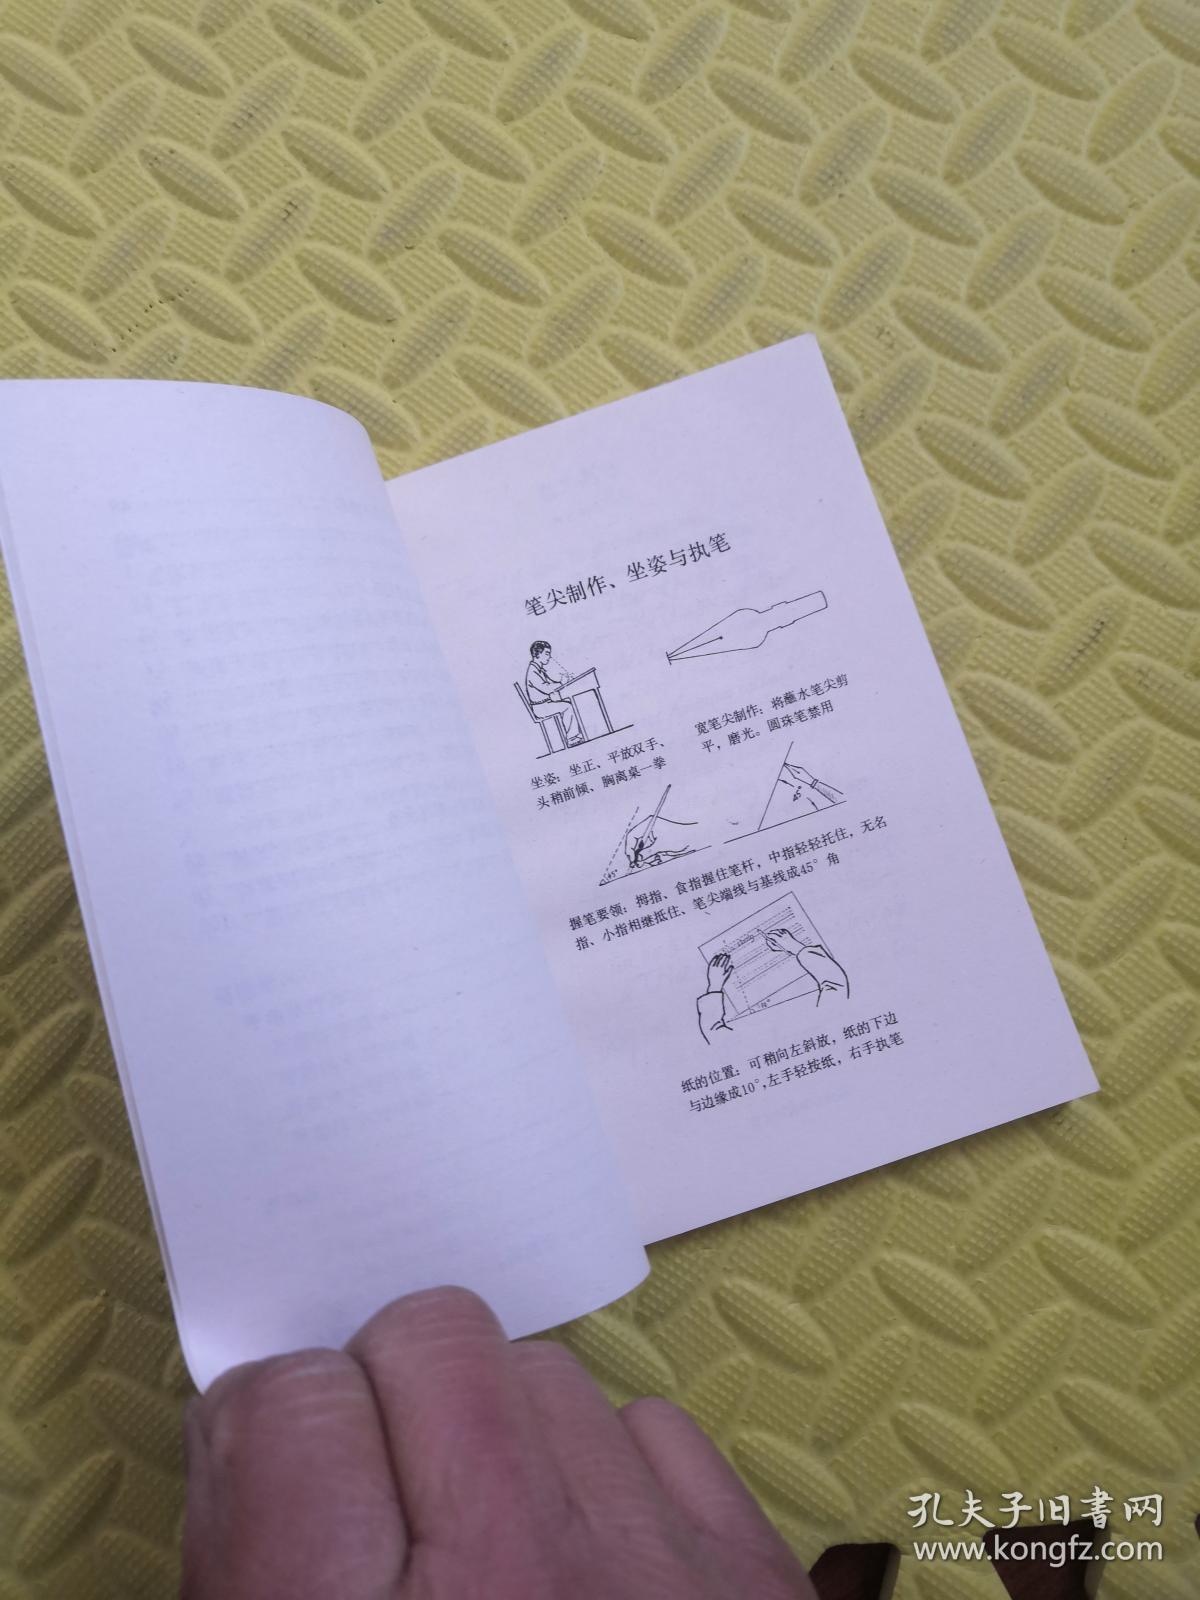 笔尖制作、坐姿与执笔
坐姿：坐正、平放双手、
头稍前倾、胸离桌一拳
宽笔尖制作：将蘸水笔尖剪
平，磨光。圆珠笔禁用
45°
45°
握笔要领：拇指、食指握住笔杆，中指轻轻托住，无名
指、小指相继抵住、笔尖端线与基线成45°角
10°
纸的位置：可稍向左斜放，纸的下边
与边缘成10°,左手轻按纸，右手执笔
孔夫子旧書网
www.kongfz.com